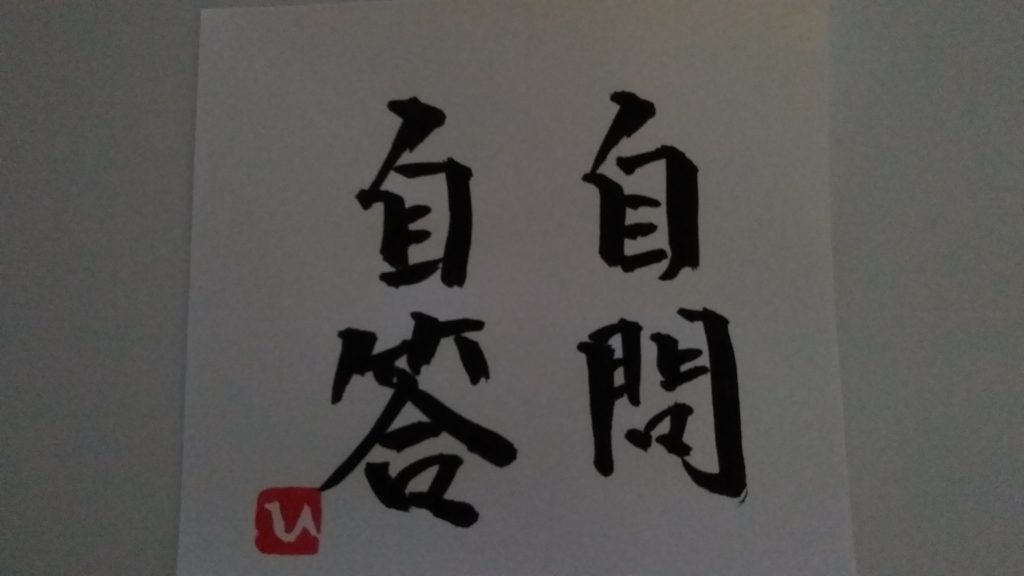 自問
自答
い